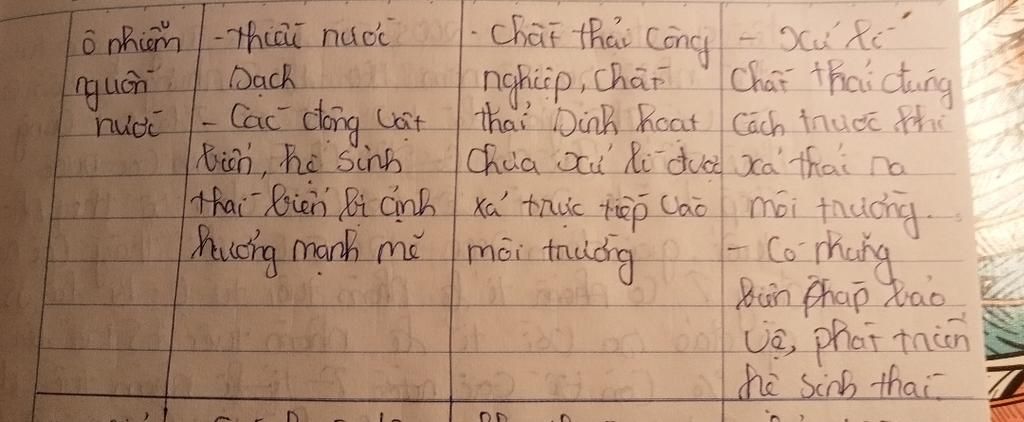 ô nhiễm
nguồn
nước
- Thiếu nước
sạch
- Các động vật
biển, hệ sinh
thái biển bị ảnh
hưởng mạnh mẽ
- Chất thải công
nghiệp, chất
thải sinh hoạt
chưa xử lí được
xả trực tiếp vào
môi trường
- Xử lí
chất thải đúng
cách trước khi
xả thải ra
môi trường.
- Có những
biện pháp bảo
vệ, phát triển
hệ sinh thái.